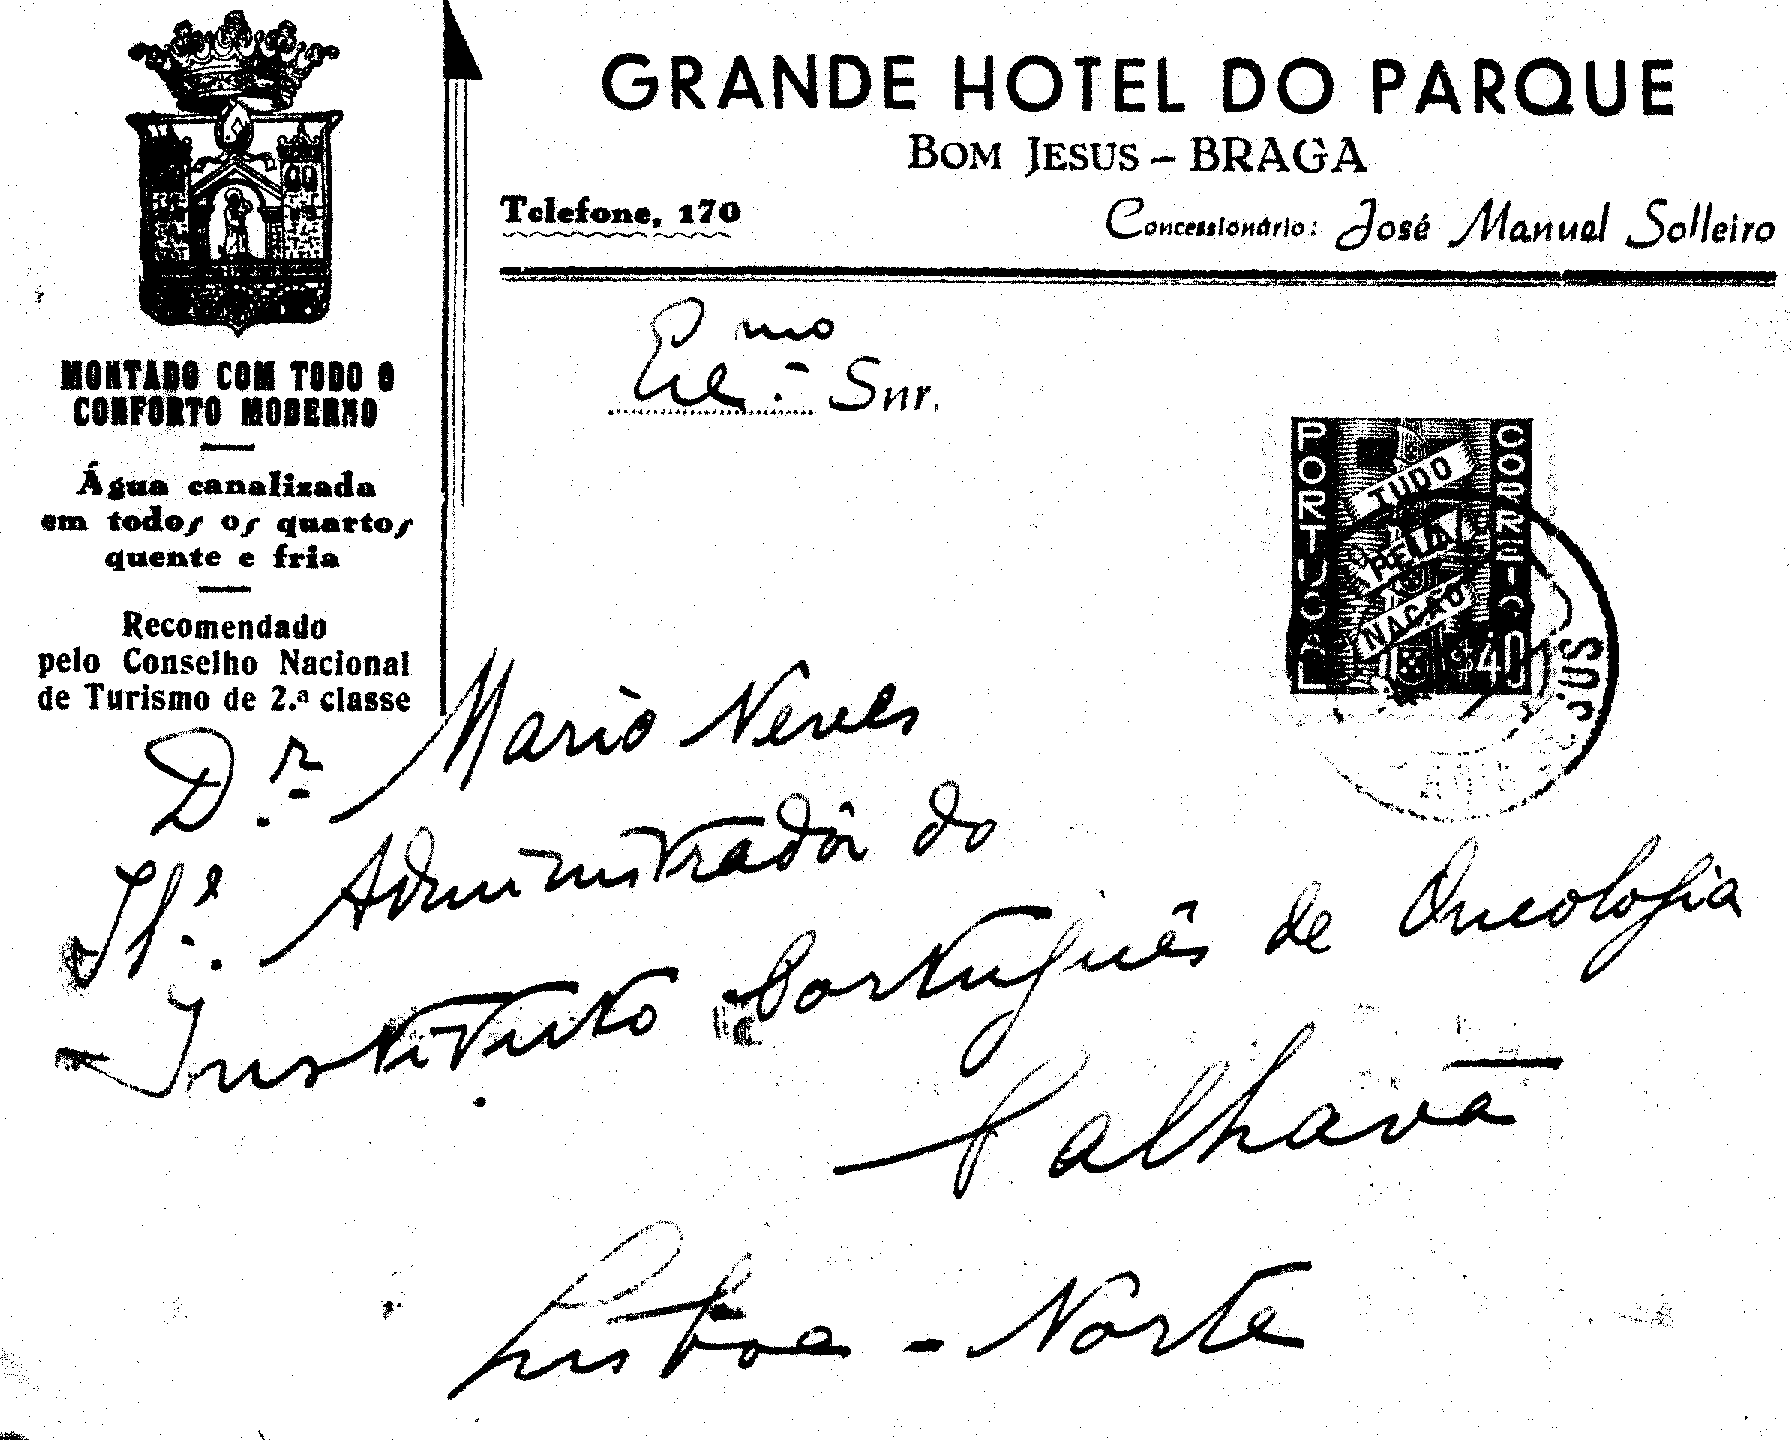 GRANDE HOTEL DO PARQUE
BOM JESUS – BRAGA
Telefone, 170
Concessionário: José Manuel Solleiro
MONTADO COM TODO O
CONFORTO MODERNO
Água canalizada
em todos os quartos
quente e fria
Recomendado
pelo Conselho Nacional
de Turismo de 2.ª classe
Exc.mo Snr.
PORTUGAL
CORREIO
TUDO
PELA
NAÇÃO
$40
D.r Mario Neves
Il.e Administradôr do
Instituto Português de Oncologia
Palhavã
Lisboa - Norte